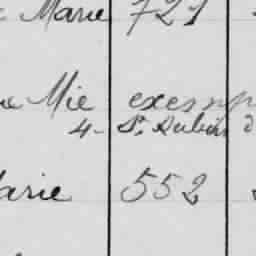 Marie 721
Mie exemp
4- St. Aubin d
arie 552